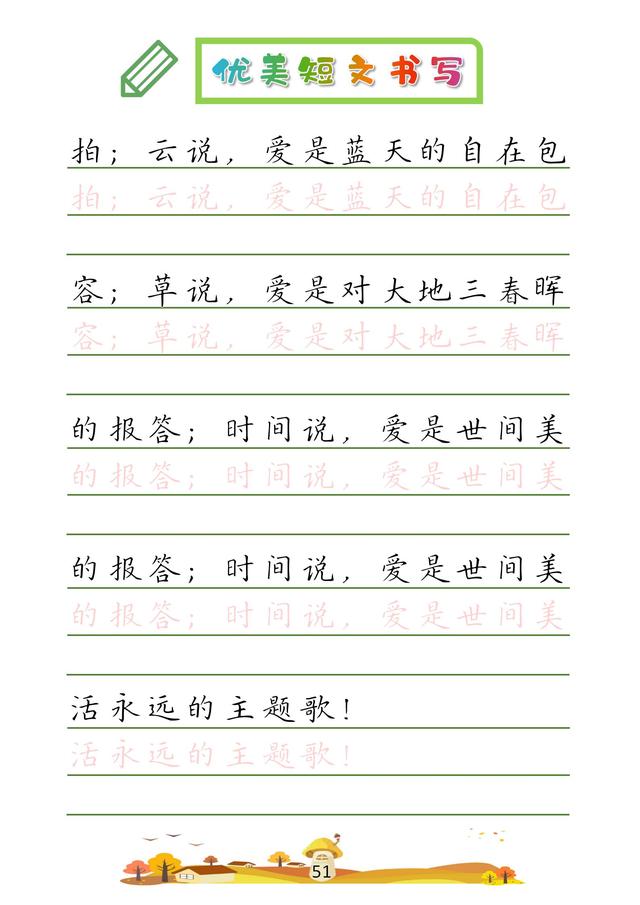 优美短文书写
拍；云说，爱是蓝天的自在包
拍；云说，爱是蓝天的自在包
容；草说，爱是对大地三春晖
容；草说，爱是对大地三春晖
的报答；时间说，爱是世间美
的报答；时间说，爱是世间美
的报答；时间说，爱是世间美
的报答；时间说，爱是世间美
活永远的主题歌！
活永远的主题歌！
51